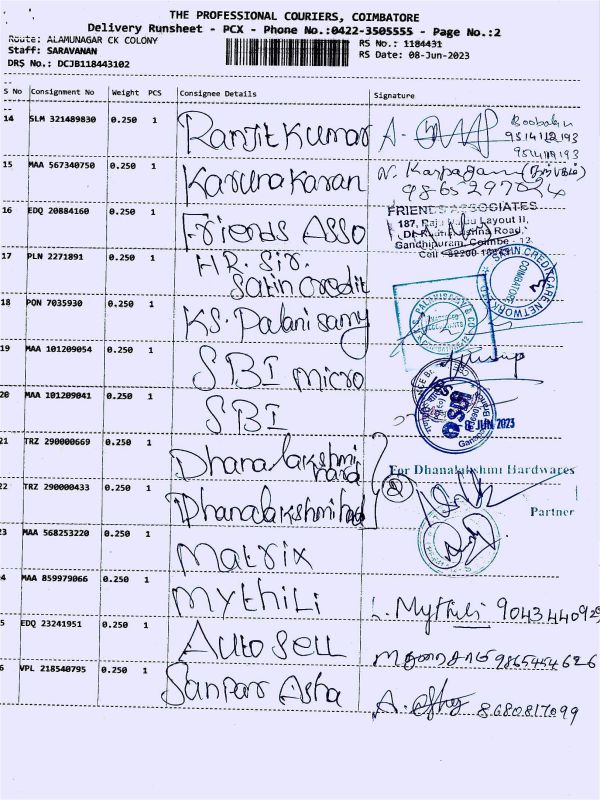 THE PROFESSIONAL COURIERS, COIMBATORE
Delivery Runsheet - PCX - Phone No.:0422-3505555 - Page No.:2
Route: ALAMUNAGAR CK COLONY
Staff: SARAVANAN
DRS No.: DCJB118443102
RS No.: 1184431
RS Date: 08-Jun-2023
S No Consignment No Weight PCS Consignee Details Signature
14 SLM 321489830 0.250 1 Ranjit Kumar A.
15 MAA 567340750 0.250 1 Karunakaran N. Karpagam
9865297024
16 EDQ 20884160 0.250 1 Friends Asso
FRIENDS ASSOCIATES
187, Raju Naidu Layout II,
Gandhipuram, Coimbe - 12
17 PLN 2271891 0.250 1 HR. Sir.
Satin credit
SATIN CREDITCARE NETWORK
COIMBATORE
18 PON 7035930 0.250 1 KS. Palanisamy
K.S. PALANISAMY & CO
19 MAA 101209054 0.250 1 SBI micro
20 MAA 101209041 0.250 1 SBI
SBI
8 JUN 2023
21 TRZ 290000669 0.250 1 Dhanalakshmi
hard
For Dhanalakshmi Hardwares
22 TRZ 290000433 0.250 1 Dhanalakshmi had
Partner
23 MAA 568253220 0.250 1 Matrix
4 MAA 859979066 0.250 1 Mythili L. Mythili 904344092
5 EDQ 23241951 0.250 1 Auto sell 9865454626
6 VPL 218540795 0.250 1 Sanpar Asha A. 8680817099